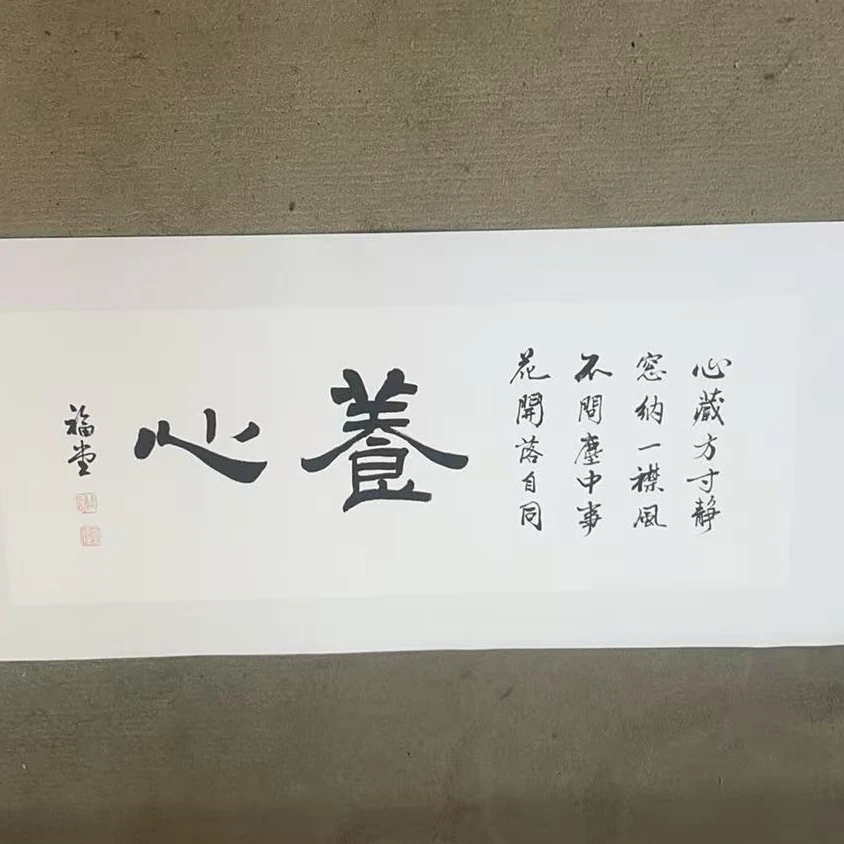 心藏方寸静
窓納一襟風
不問塵中事
花開落自同
養心
福堂